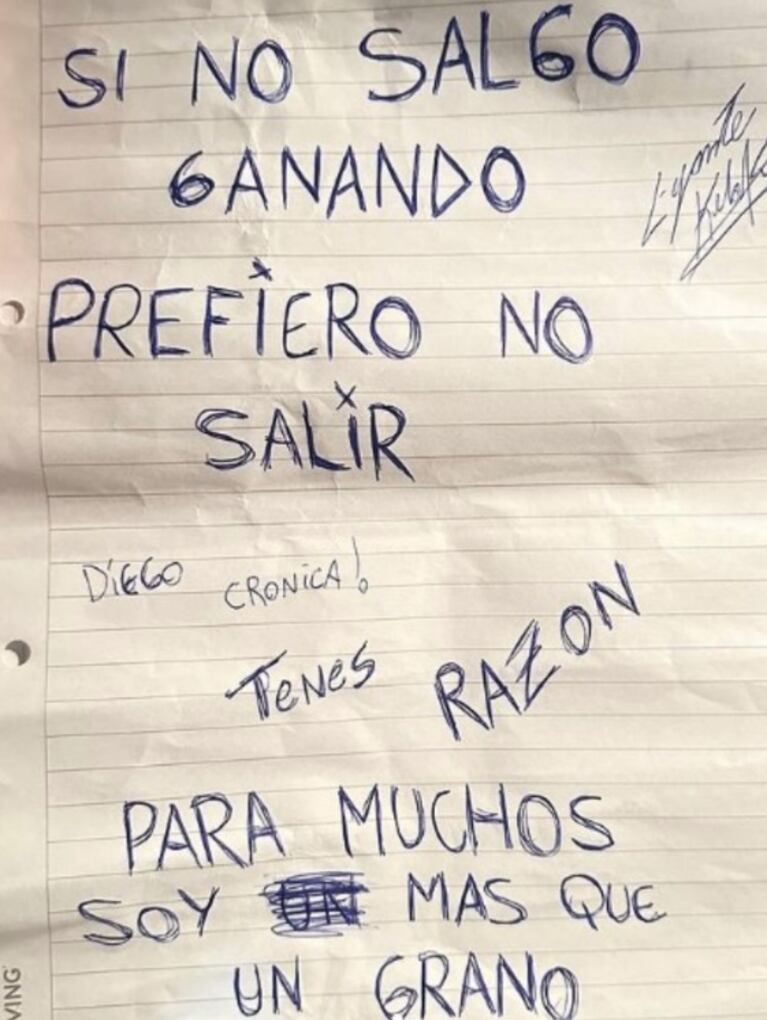 SI NO SALGO
GANANDO
PREFiERO NO
SALiR
DiEGO CRONiCA!
TENES RAZON
PARA MUCHOS
SOY UN MAS QUE
UN GRANO
VING